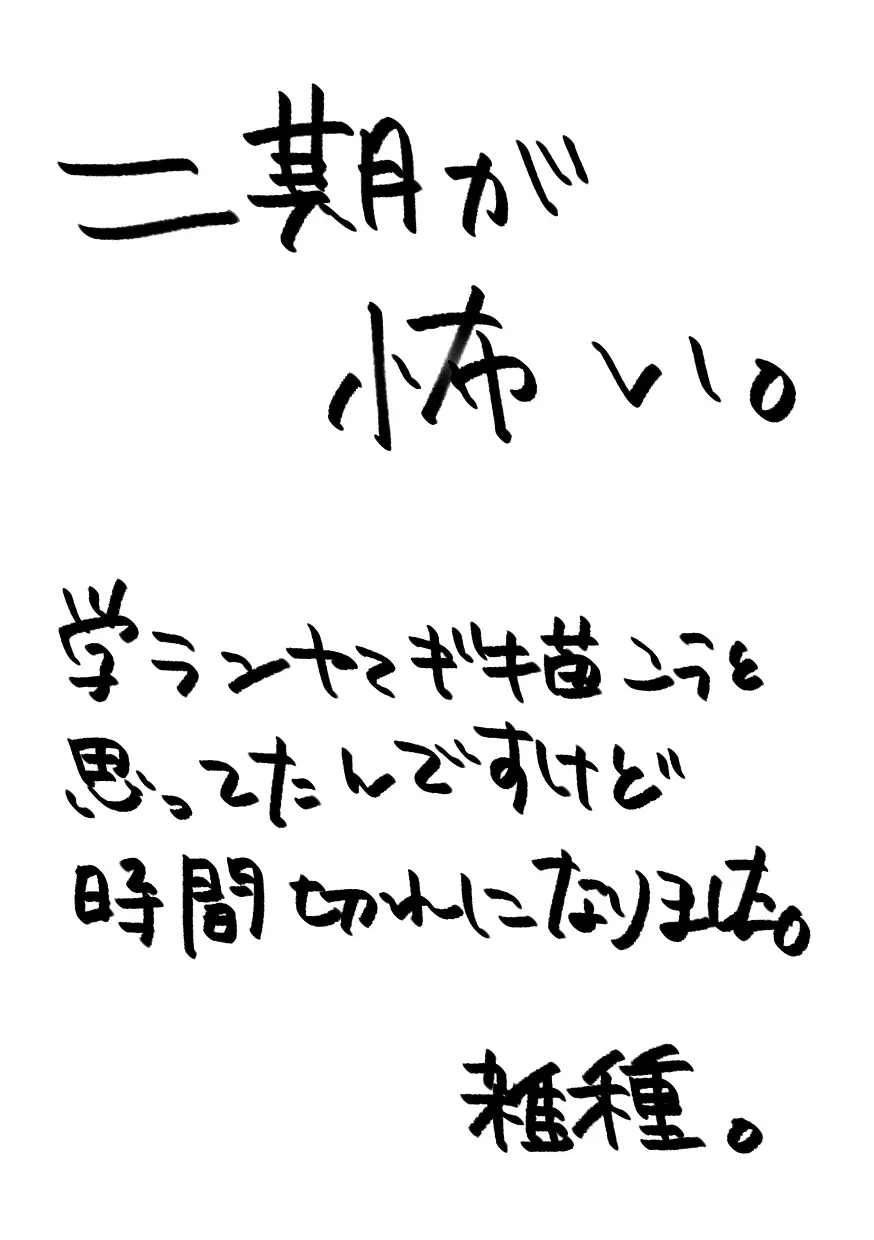 二期が
怖い。
学ランヤマギキ描こうと
思ってたんですけど
時間切れになりました。
雑種。